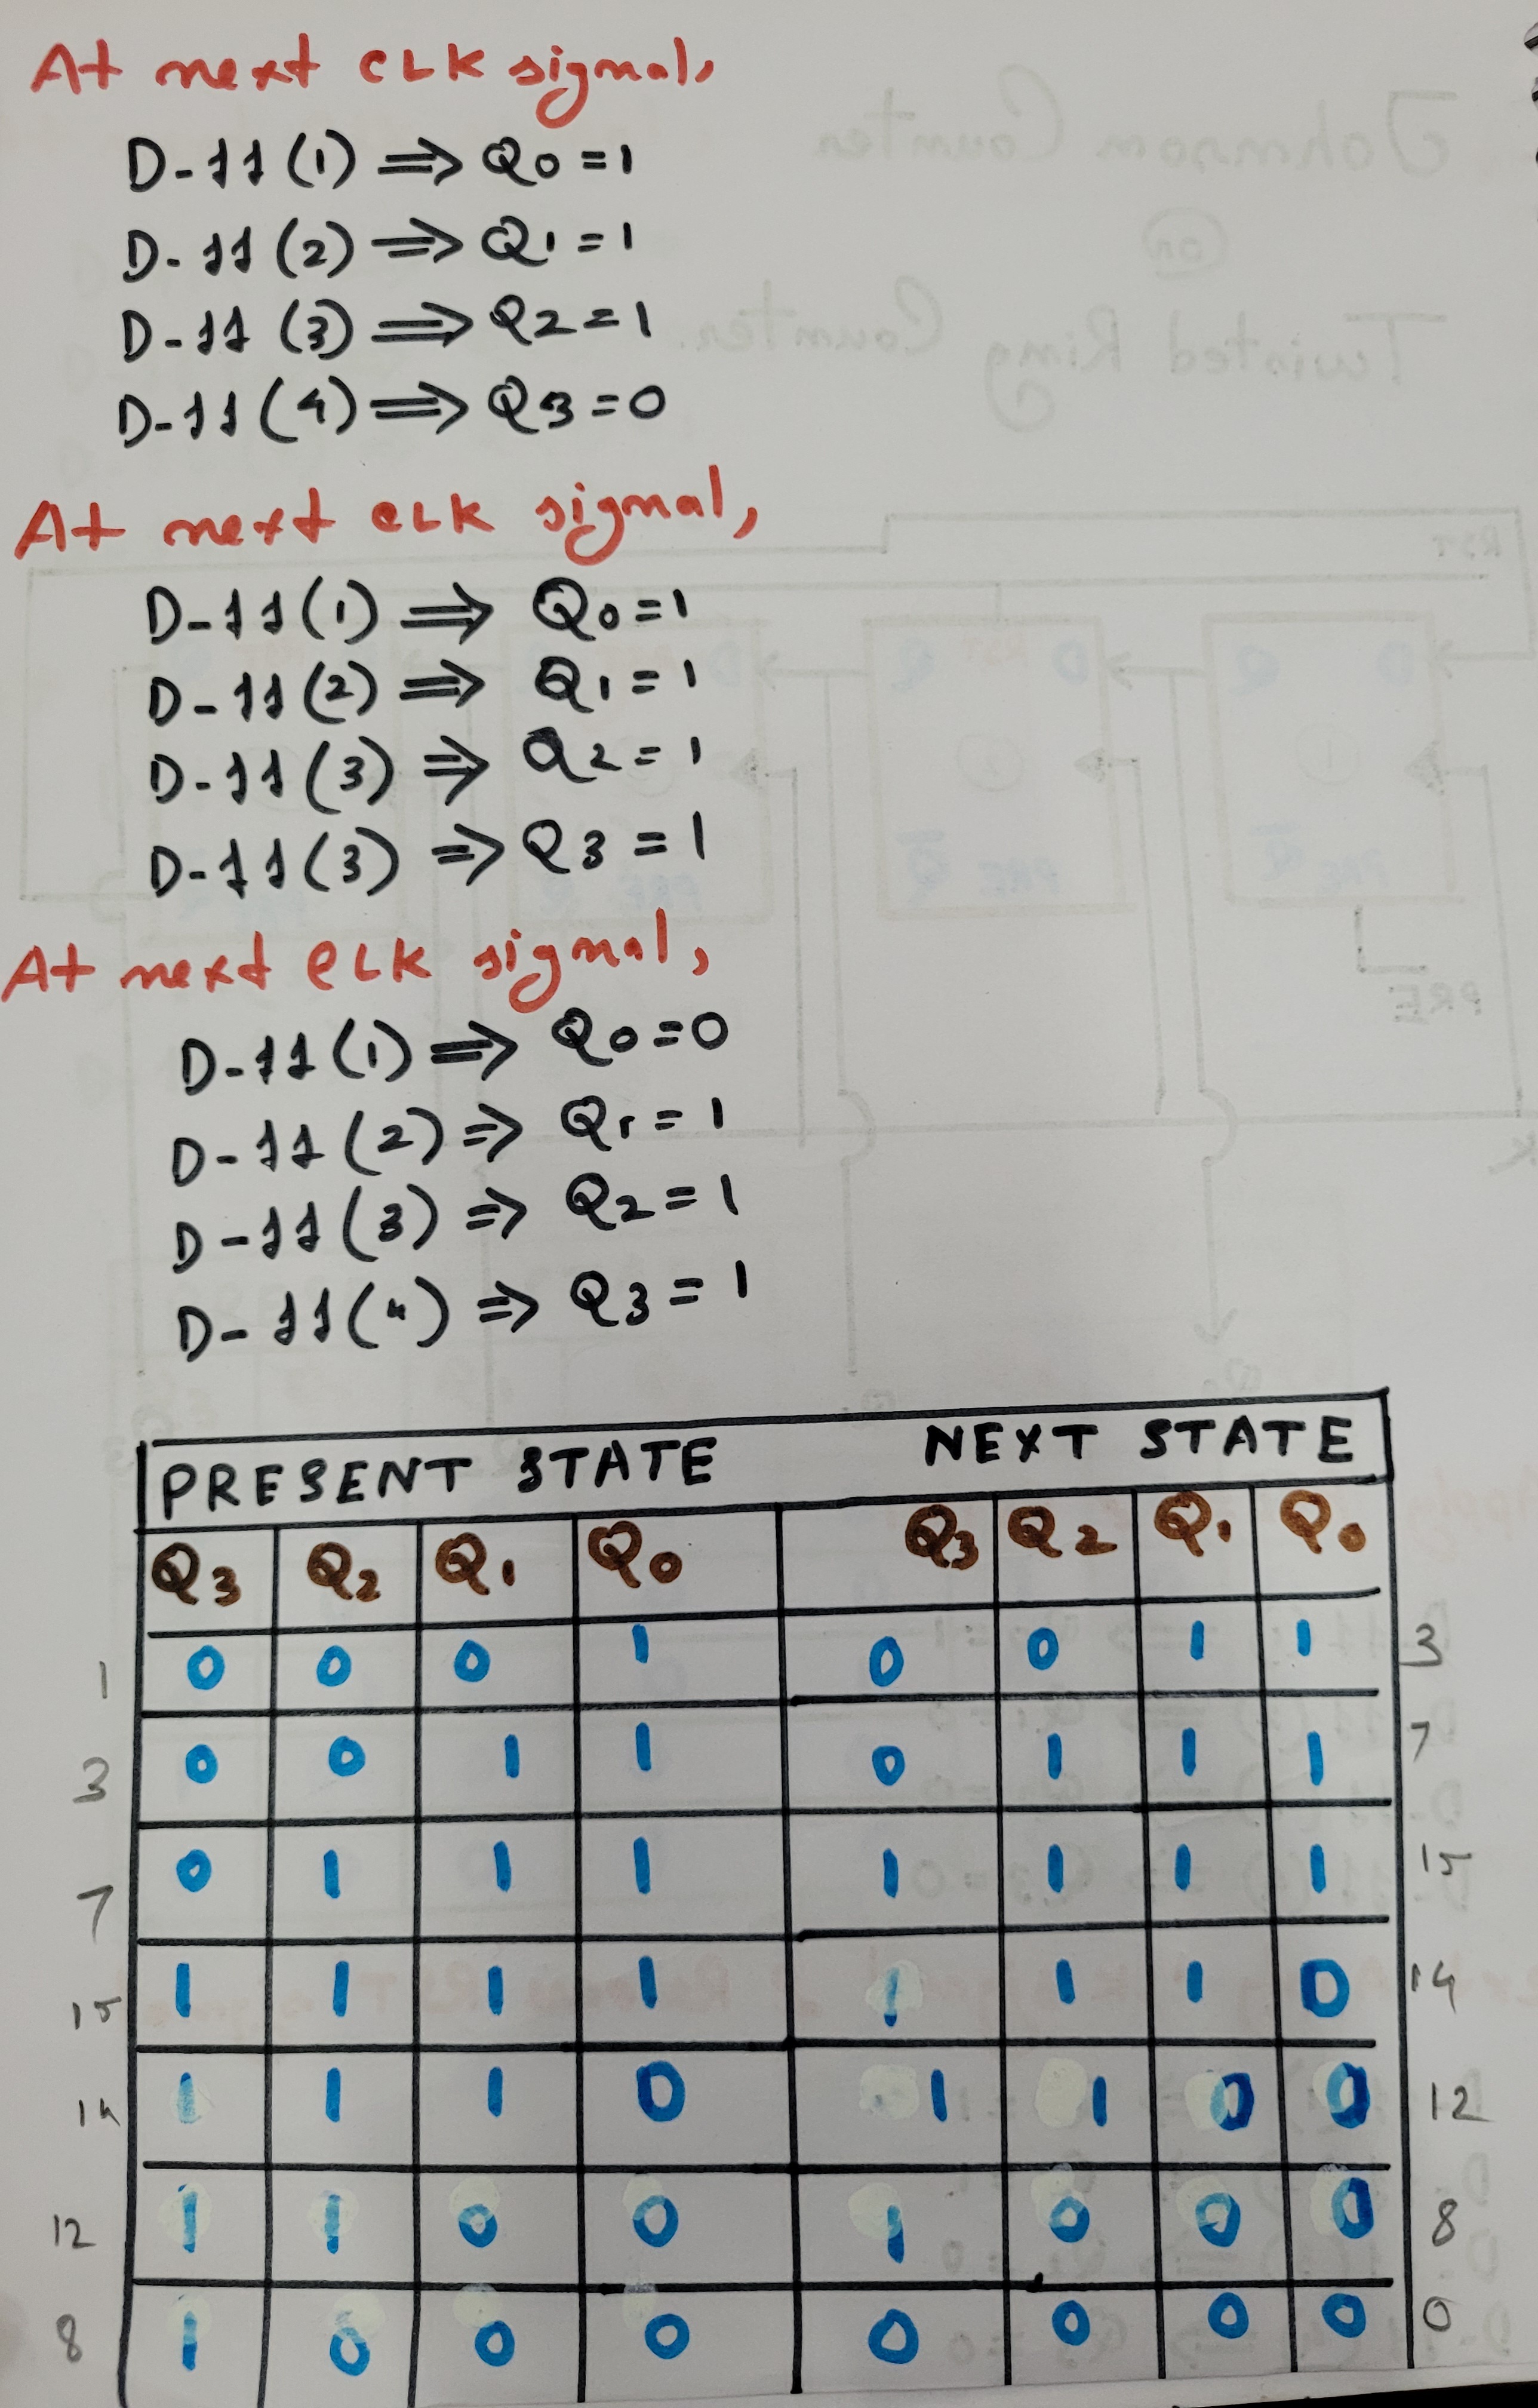 At next CLK signal,
D-ff (1) ⇒ Q0 = 1
D-ff (2) ⇒ Q1 = 1
D-ff (3) ⇒ Q2 = 1
D-ff (4) ⇒ Q3 = 0
At next CLK signal,
D-ff (1) ⇒ Q0 = 1
D-ff (2) ⇒ Q1 = 1
D-ff (3) ⇒ Q2 = 1
D-ff (3) ⇒ Q3 = 1
At next CLK signal,
D-ff (1) ⇒ Q0 = 0
D-ff (2) ⇒ Q1 = 1
D-ff (3) ⇒ Q2 = 1
D-ff (4) ⇒ Q3 = 1
PRESENT STATE NEXT STATE
Q3 Q2 Q1 Q0 Q3 Q2 Q1 Q0
1 0 0 0 1 0 0 1 1 3
3 0 0 1 1 0 1 1 1 7
7 0 1 1 1 1 1 1 1 15
15 1 1 1 1 1 1 1 0 14
14 1 1 1 0 1 1 0 0 12
12 1 1 0 0 1 0 0 0 8
8 1 0 0 0 0 0 0 0 0